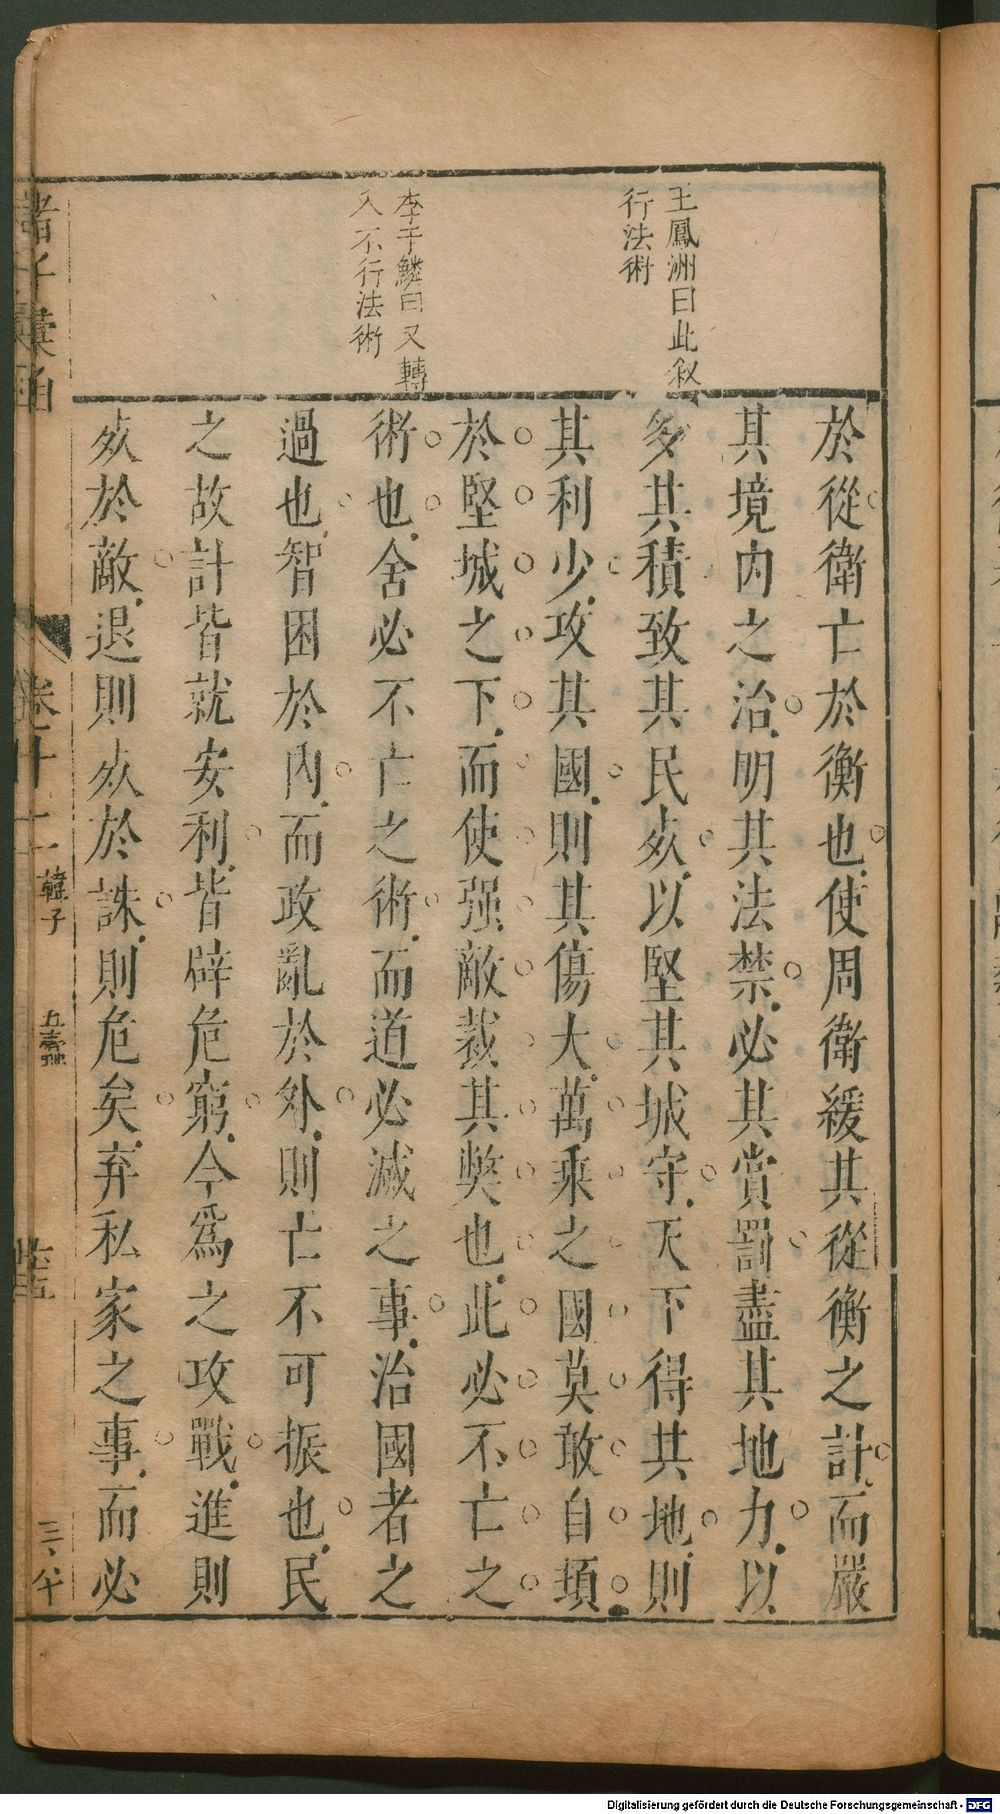 王鳳洲曰此叙
行法術
李于鱗曰又轉
入不行法術
於從衛亡於衡也使周衛緩其從衡之計而嚴
其境內之治明其法禁必其賞罰盡其地力以
多其積致其民死以堅其城守天下得其地則
其利少攻其國則其傷大萬乘之國莫敢自頓
於堅城之下而使强敵裁其獘也此必不亡之
術也舍必不亡之術而道必滅之事治國者之
過也智困於內而政亂於外則亡不可振也民
之故計皆就安利皆辟危窮今爲之攻戰進則
死於敵退則死於誅則危矣弃私家之事而必
諸子彙函
卷二十二
韓子
五蠹
Digitalisierung gefördert durch die Deutsche Forschungsgemeinschaft - DFG